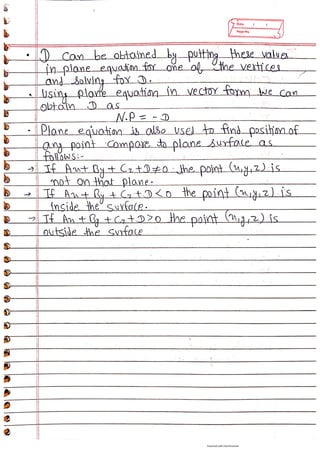 Date / /
Page No.
• D can be obtained by putting these values
in plane equation for one of the vertices
and solving for D.
• Using plane equation in vector form we can
obtain D as
N.P = -D
• Plane equation is also used to find position of
any point compare to plane surface as
follows:-
→ If Ax + By + Cz + D ≠ 0 the point (x,y,z) is
not on that plane.
→ If Ax + By + Cz + D < 0 the point (x,y,z) is
inside the surface.
→ If Ax + By + Cz + D > 0 the point (x,y,z) is
outside the surface
Scanned with CamScanner